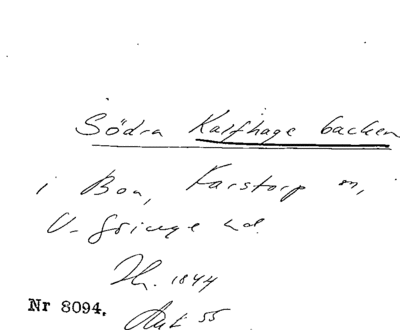 Södra Kalfhage backen
i Bou, Karstorp m,
V. Göinge hd.
Jr. 1844
Nr 8094.
Akt 55